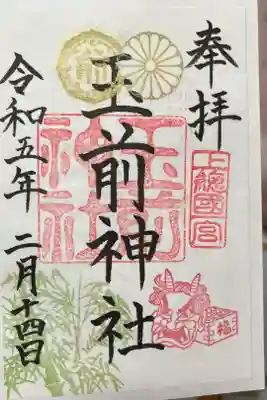 奉拝
上総國一宮
玉前神社
玉前神社
令和五年 二月十四日
福